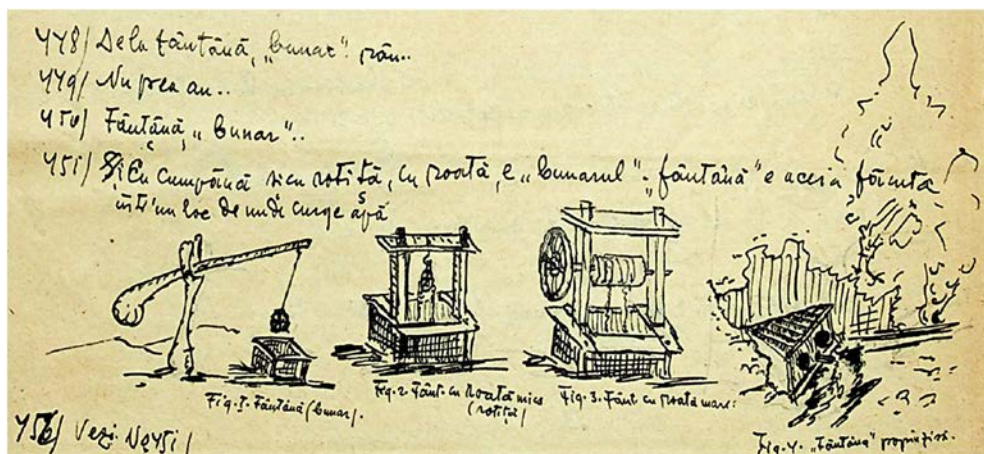 448/ Dela fântână, „bunar" rân..
449/ Nu prea au..
450/ Fântână, „bunar"..
451/ Și cu cumpănă și cu rotiță, cu roată, e „bunarul". „fântână" e aceia făcută
într'un loc de unde curge apă
Fig. 1. Fântână (bunar).
Fig. 2 Fânt. cu Roată mică
(rotiță)
Fig. 3. Fânt cu roată mare.
Fig. 4. „Fântână" propriu zisă.
456/ Vezi. No 451/